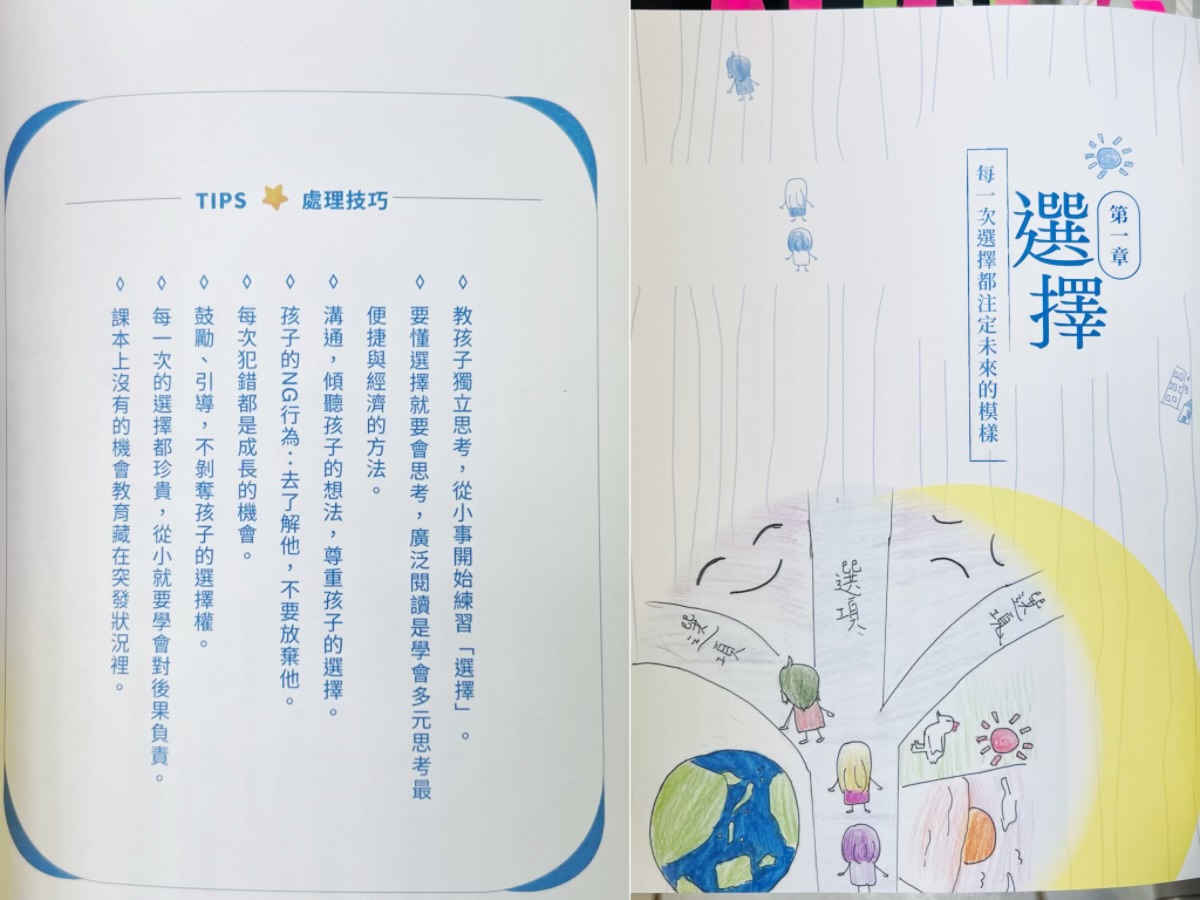 TIPS 處理技巧
◊ 教孩子獨立思考，從小事開始練習「選擇」。
◊ 要懂選擇就要會思考，廣泛閱讀是學會多元思考最
便捷與經濟的方法。
◊ 溝通，傾聽孩子的想法，尊重孩子的選擇。
◊ 孩子的NG行為：去了解他，不要放棄他。
◊ 每次犯錯都是成長的機會。
◊ 鼓勵、引導，不剝奪孩子的選擇權。
◊ 每一次的選擇都珍貴，從小就要學會對後果負責。
◊ 課本上沒有的機會教育藏在突發狀況裡。
第一章
選擇
每一次選擇都注定未來的模樣
選項
選項
選項